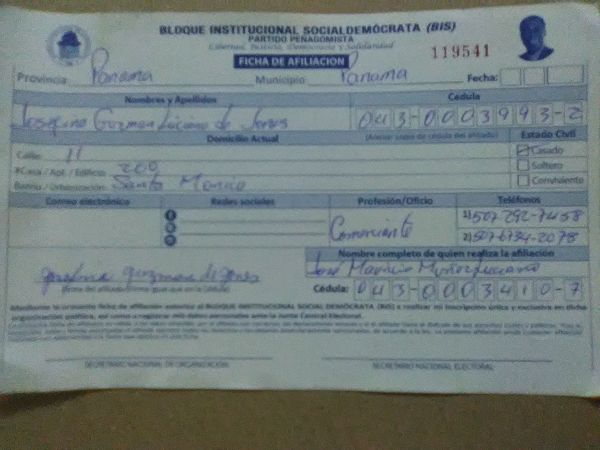 BLOQUE INSTITUCIONAL SOCIALDEMÓCRATA (BIS)
PARTIDO PEÑAGOMISTA
Libertad, Justicia, Democracia y Solidaridad
119541
FICHA DE AFILIACION
Provincia: Panama Municipio: Panama Fecha:
Nombres y Apellidos Cedula
Josefina Guzman Luciano de Jones 043-0003993-2
Domicilio Actual (Anexar copia de cédula del afiliado) Estado Civil
Calle: 11 Casado
#Casa / Apt. / Edificio: 200 Soltero
Barrio / Urbanización: Santa Monica Conviviente
Correo electrónico Redes sociales Profesión/Oficio Teléfonos
Comerciante 1) 507-292-7458
2) 507-6734-2078
Nombre completo de quien realiza la afiliación
Josefina guzman de Jones José Mauricio Luciano
(Firma del afiliado igual que en la Cédula) Cédula: 043-0003410-7
Mediante la presente ficha de afiliación autorizo al BLOQUE INSTITUCIONAL SOCIAL DEMÓCRATA (BIS) a realizar mi inscripción única y exclusiva en dicha
organización política, así como a registrar mis datos personales ante la Junta Central Electoral.
SECRETARIO NACIONAL DE ORGANIZACIÓN SECRETARIO NACIONAL ELECTORAL